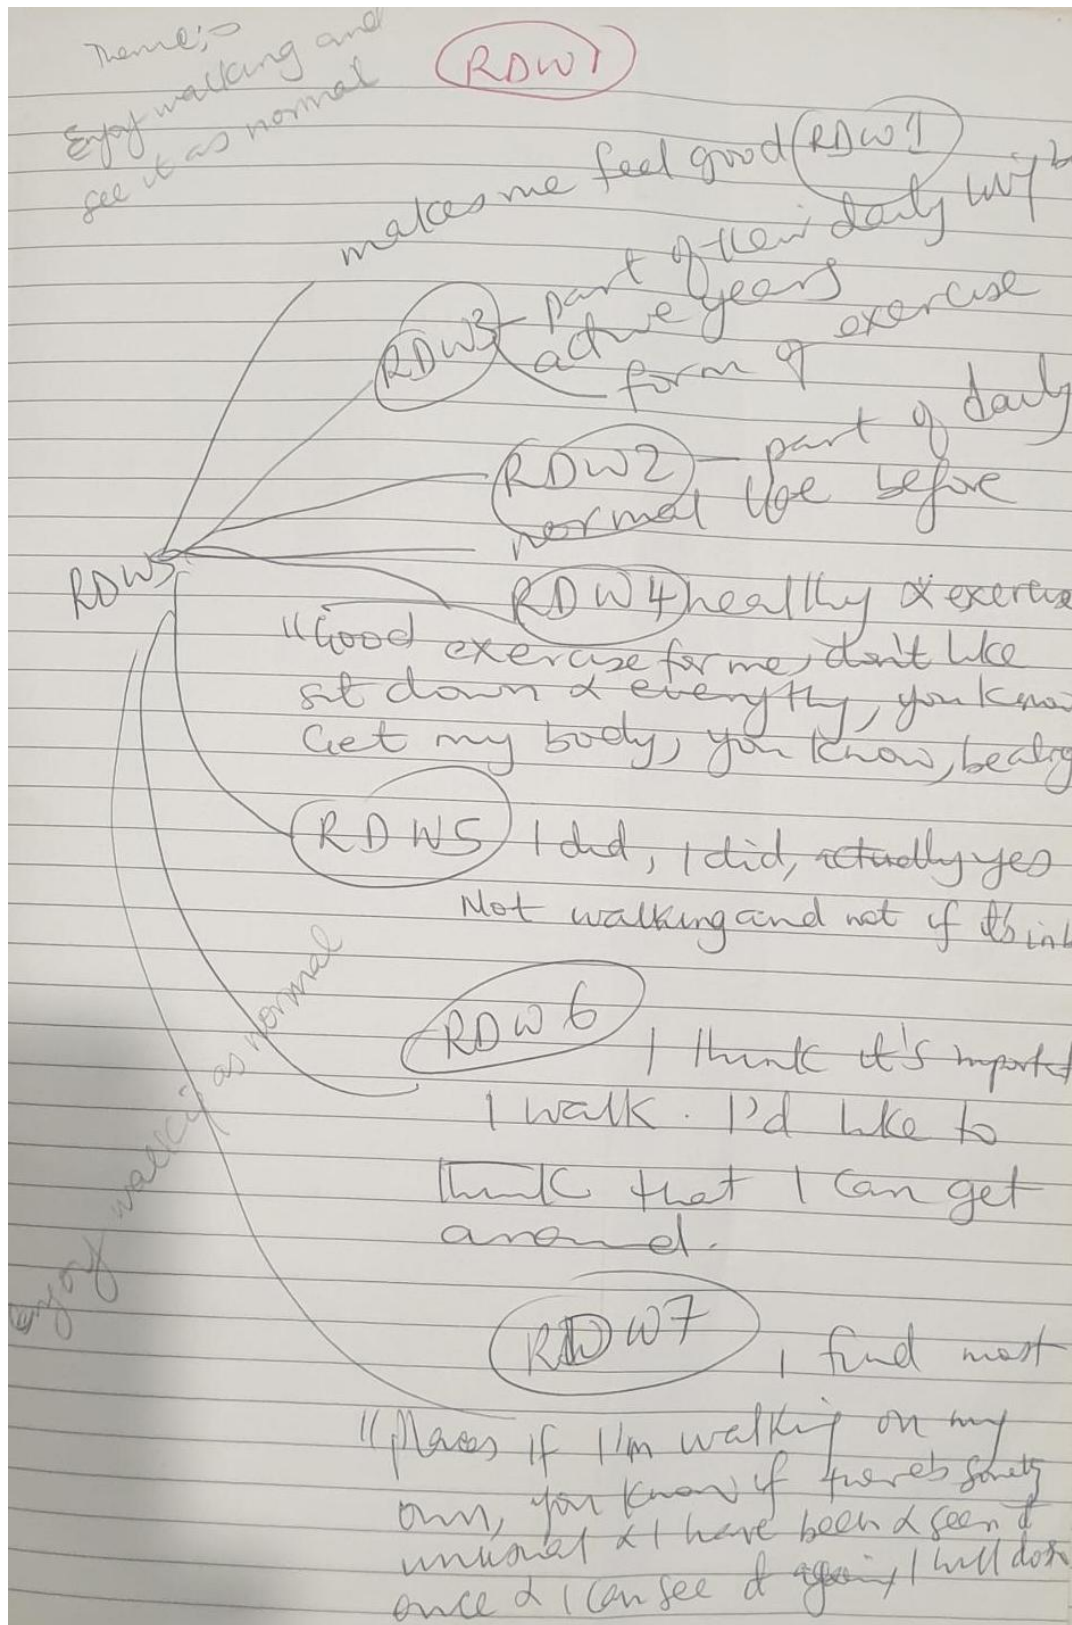 Theme;
Enjoy walking and
see it as normal
RDW1
makes me feel good RDW1
RDW3 - part of their daily
active years
form of exercise
RDW2 - part of daily
normal life before
RDW5
RDW4 healthy & exercise
"Good exercise for me, don't like
sit down & everythg, you know
Get my body, you know,
RDW5 I did, I did, actually yes
Not walking and not if it's in
RDW6 I think it's import
I walk. I'd like to
think that I can get
around.
enjoy walking as normal
RDW7 I find most
"places if I'm walking on my
own, you know if there's
unusual & I have been & seen it
once & I can see it again, I will do